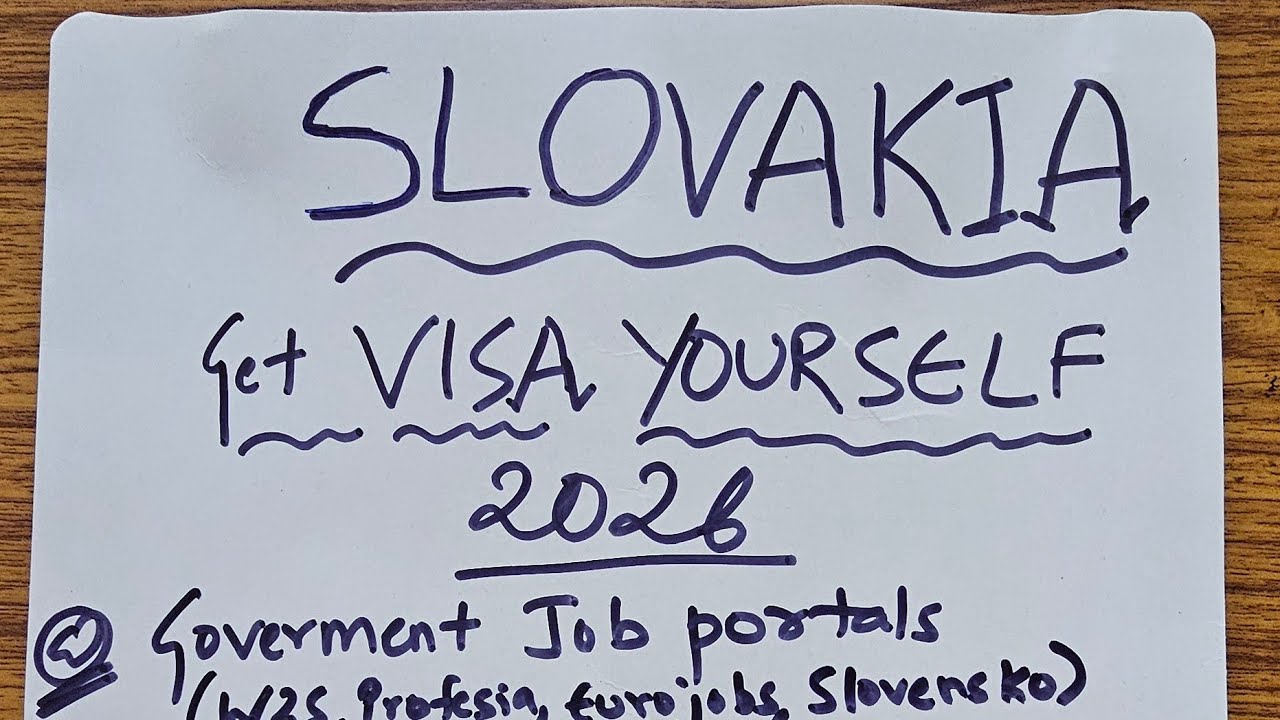 SLOVAKIA
Get VISA YOURSELF
2026
Goverment Job portals
(W2S, Profesia, Eurojobs, Slovensko)